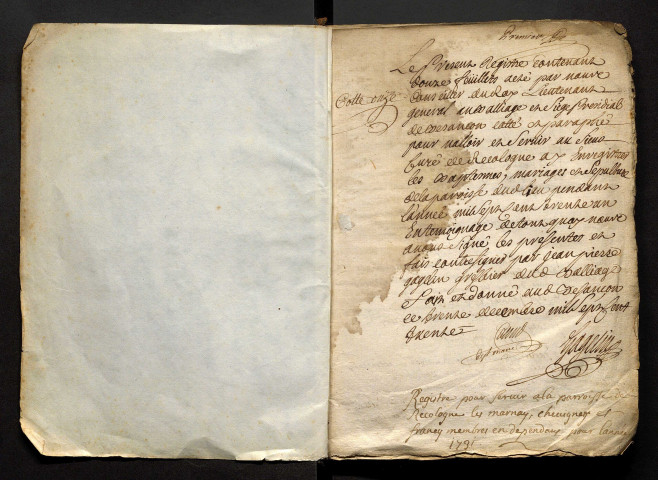 Premier
Le Present Registre contenant
douze feuillets a eté par nous
Cotte onze
Conseiller du Roy Lieutenant
general au Balliage et Siege Presidial
de Besançon cotté et paraphé
pour valloir et servir au Sieur
Curé de Recologne a y Enregistrer
les Baptesmes, mariages et Sepulture
de la paroisse dud Lieu pendant
Lannée mil sept cent trente un
En temoignage de tout quoy nous
avons signé les presentes et
fait contresigner par jean pierre
gagelin greffier aud Balliage
Fait et donné aud Besançon
ce trente decembre mil sept cent
trente
Gagelin
Registre pour servir a la parroisse de
Recologne les marnay, chevigney et
francey membres en dependans pour lannée
1731